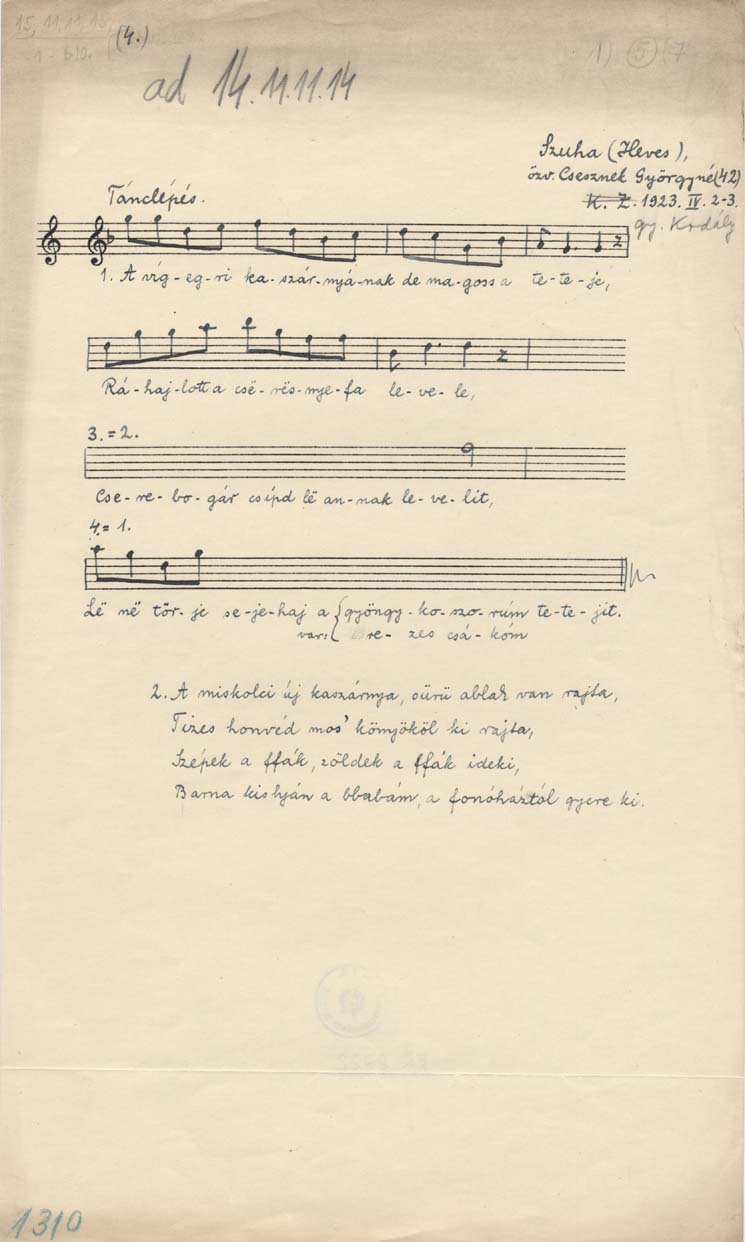 15, 11.11.15
- 1 - b10.
(4.)
1) 5 (7
ad 14.11.11.14
Szuha (Heves),
özv. Csesznek Györgyné (42)
K. Z. 1923. IV. 2-3.
gy. Kodály
Tánclépés.
1. A víg-eg-ri ka-szár-nyá-nak de ma-goss a te-te-je,
Rá-haj-lott a csë-rës-nye-fa le-ve-le,
3. = 2.
Cse-re-bo-gár csípd lë an-nak le-ve-lit,
4. = 1.
Lë në tör-je se-je-haj a gyöngy-ko-szo-rúm te-te-jit.
var: re-zes csá-kóm
2. A miskolci új kaszárnya, sürü ablak van rajta,
Tizes honvéd mos' könyököl ki rajta,
Szépek a ffák, zöldek a ffák ideki,
Barna kislyán a bbabám, a fonóháztól gyere ki.
1310